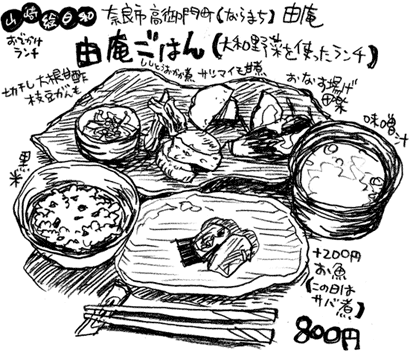 山崎絵日和
おでかけランチ
奈良市高御門町(ならまち) 由庵
由庵ごはん(大和野菜を使ったランチ)
ししとうおかか煮
サツマイモ甘煮
おなす揚げ田楽
切干し大根甘酢
枝豆がんも
味噌汁
黒米
+200円
お魚
(この日はサバ煮)
800円